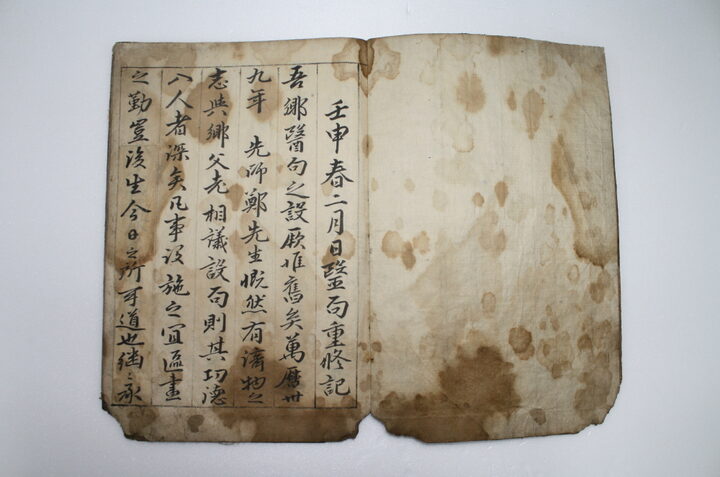 壬申春二月日毉局重修記
吾鄉醫局之設厥惟舊矣萬曆卅
九年 先師鄭先生慨然有濟物之
志與鄉父老相議設局則其功德
入人者深矣凡事設施之宜區畫
之勤豈後生今日之所可道也継〻承